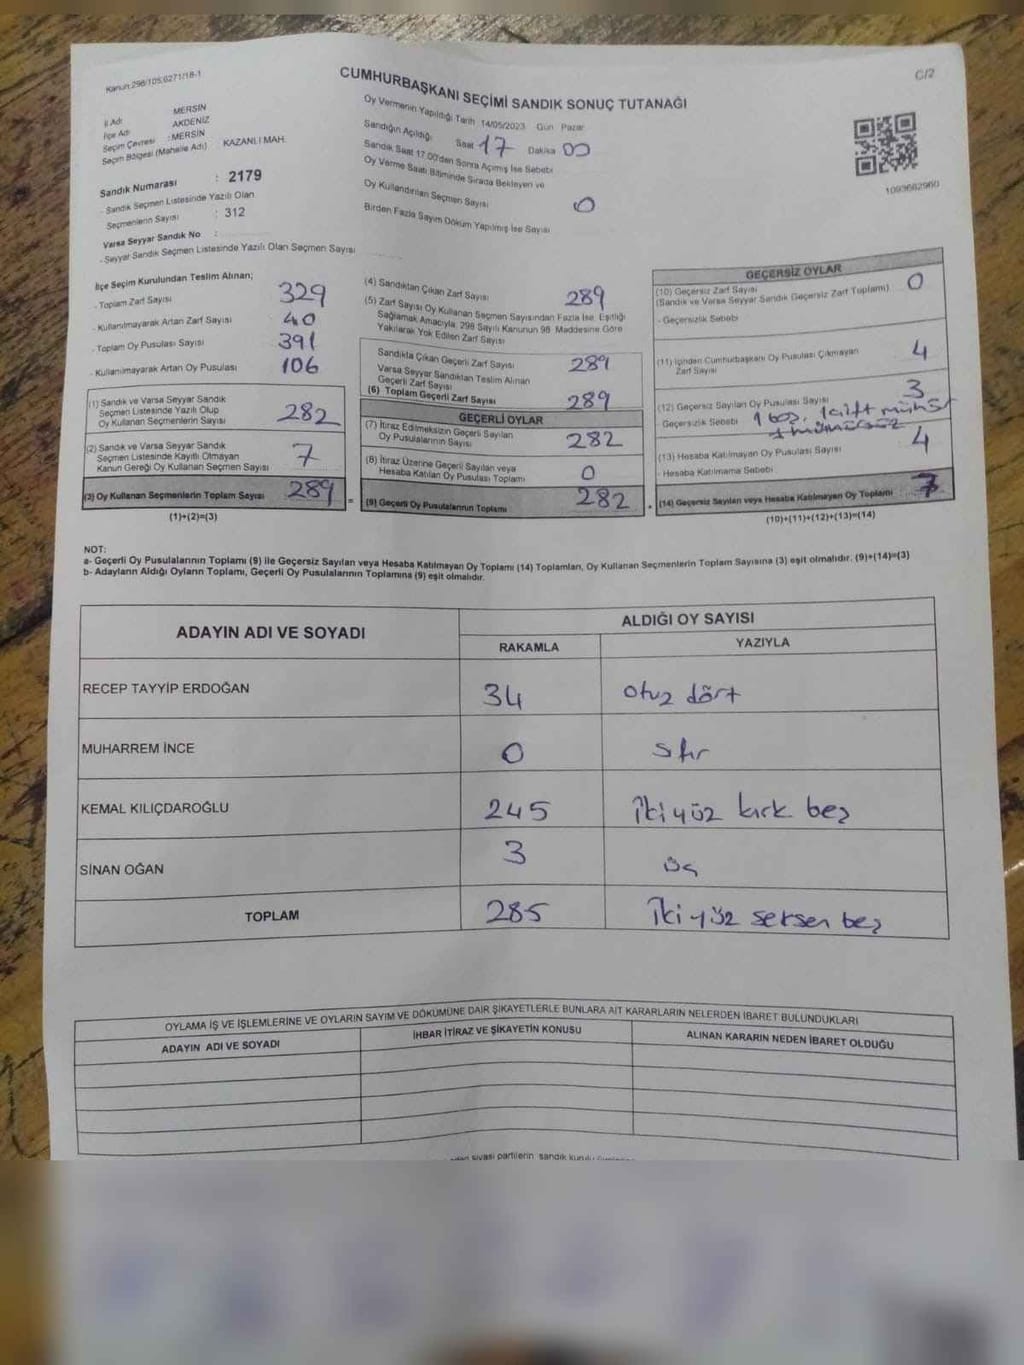 Kanun:298/105;6271/18-1
C/2
CUMHURBAŞKANI SEÇİMİ SANDIK SONUÇ TUTANAĞI
İl Adı MERSİN
İlçe Adı AKDENİZ
Seçim Çevresi : MERSİN
Seçim Bölgesi (Mahalle Adı) KAZANLI MAH.
Sandık Numarası : 2179
- Sandık Seçmen Listesinde Yazılı Olan
Seçmenlerin Sayısı : 312
Varsa Seyyar Sandık No :
- Seyyar Sandık Seçmen Listesinde Yazılı Olan Seçmen Sayısı
Oy Vermenin Yapıldığı Tarih 14/05/2023 Gün Pazar
Sandığın Açıldığı Saat 17 Dakika 00
Sandık Saat 17.00'den Sonra Açımış İse Sebebi
Oy Verme Saati Bitiminde Sırada Bekleyen ve
Oy Kullandırılan Seçmen Sayısı 0
Birden Fazla Sayım Döküm Yapılmış İse Sayısı
1093662960
İlçe Seçim Kurulundan Teslim Alınan;
- Toplam Zarf Sayısı 329
- Kullanılmayarak Artan Zarf Sayısı 40
- Toplam Oy Pusulası Sayısı 391
- Kullanılmayarak Artan Oy Pusulası 106
(1) Sandık ve Varsa Seyyar Sandık
Seçmen Listesinde Yazılı Olup
Oy Kullanan Seçmenlerin Sayısı 282
(2) Sandık ve Varsa Seyyar Sandık
Seçmen Listesinde Kayıtlı Olmayan
Kanun Gereği Oy Kullanan Seçmen Sayısı 7
(3) Oy Kullanan Seçmenlerin Toplam Sayısı 289 =
(1)+(2)=(3)
(4) Sandıktan Çıkan Zarf Sayısı 289
(5) Zarf Sayısı Oy Kullanan Seçmen Sayısından Fazla İse, Eşitliği
Sağlamak Amacıyla; 298 Sayılı Kanunun 98. Maddesine Göre
Yakılarak Yok Edilen Zarf Sayısı
Sandıkla Çıkan Geçerli Zarf Sayısı 289
Varsa Seyyar Sandıktan Teslim Alınan
Geçerli Zarf Sayısı
(6) Toplam Geçerli Zarf Sayısı 289
GEÇERLİ OYLAR
(7) İtiraz Edilmeksizin Geçerli Sayılan
Oy Pusulalarının Sayısı 282
(8) İtiraz Üzerine Geçerli Sayılan veya
Hesaba Katılan Oy Pusulası Toplamı 0
(9) Geçerli Oy Pusulalarının Toplamı 282
GEÇERSİZ OYLAR
(10) Geçersiz Zarf Sayısı 0
(Sandık ve Varsa Seyyar Sandık Geçersiz Zarf Toplamı)
- Geçersizlik Sebebi
(11) İçinden Cumhurbaşkanı Oy Pusulası Çıkmayan
Zarf Sayısı 4
(12) Geçersiz Sayılan Oy Pusulası Sayısı 3
- Geçersizlik Sebebi 1 boş, 1 çift mühür
1 mühürsüz
(13) Hesaba Katılmayan Oy Pusulası Sayısı 4
- Hesaba Katılmama Sebebi
(14) Geçersiz Sayılan veya Hesaba Katılmayan Oy Toplamı 7
(10)+(11)+(12)+(13)=(14)
NOT:
a- Geçerli Oy Pusulalarının Toplamı (9) ile Geçersiz Sayılan veya Hesaba Katılmayan Oy Toplamı (14) Toplamları, Oy Kullanan Seçmenlerin Toplam Sayısına (3) eşit olmalıdır. (9)+(14)=(3)
b- Adayların Aldığı Oyların Toplamı, Geçerli Oy Pusulalarının Toplamına (9) eşit olmalıdır.
ADAYIN ADI VE SOYADI ALDIĞI OY SAYISI
RAKAMLA YAZIYLA
RECEP TAYYİP ERDOĞAN 34 otuz dört
MUHARREM İNCE 0 sıfır
KEMAL KILIÇDAROĞLU 245 İki yüz kırk beş
SİNAN OĞAN 3 üç
TOPLAM 285 İki yüz seksen beş
OYLAMA İŞ VE İŞLEMLERİNE VE OYLARIN SAYIM VE DÖKÜMÜNE DAİR ŞİKAYETLERLE BUNLARA AİT KARARLARIN NELERDEN İBARET BULUNDUKLARI
ADAYIN ADI VE SOYADI İHBAR İTİRAZ VE ŞİKAYETİN KONUSU ALINAN KARARIN NEDEN İBARET OLDUĞU
siyasi partilerin sandık